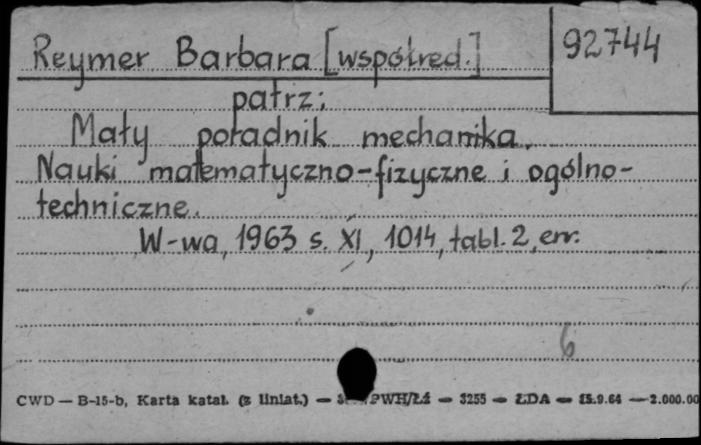 Reymer Barbara [współred.]
92744
patrz:
Mały poradnik mechanika.
Nauki matematyczno-fizyczne i ogólno-
techniczne.
W-wa, 1963 s. XI, 1014, tabl. 2, err.
6
CWD — B-15-b, Karta katal. (z liniat.) — PWH/Łź — 3255 — ŁDA — 15.9.64 — 2.000.00